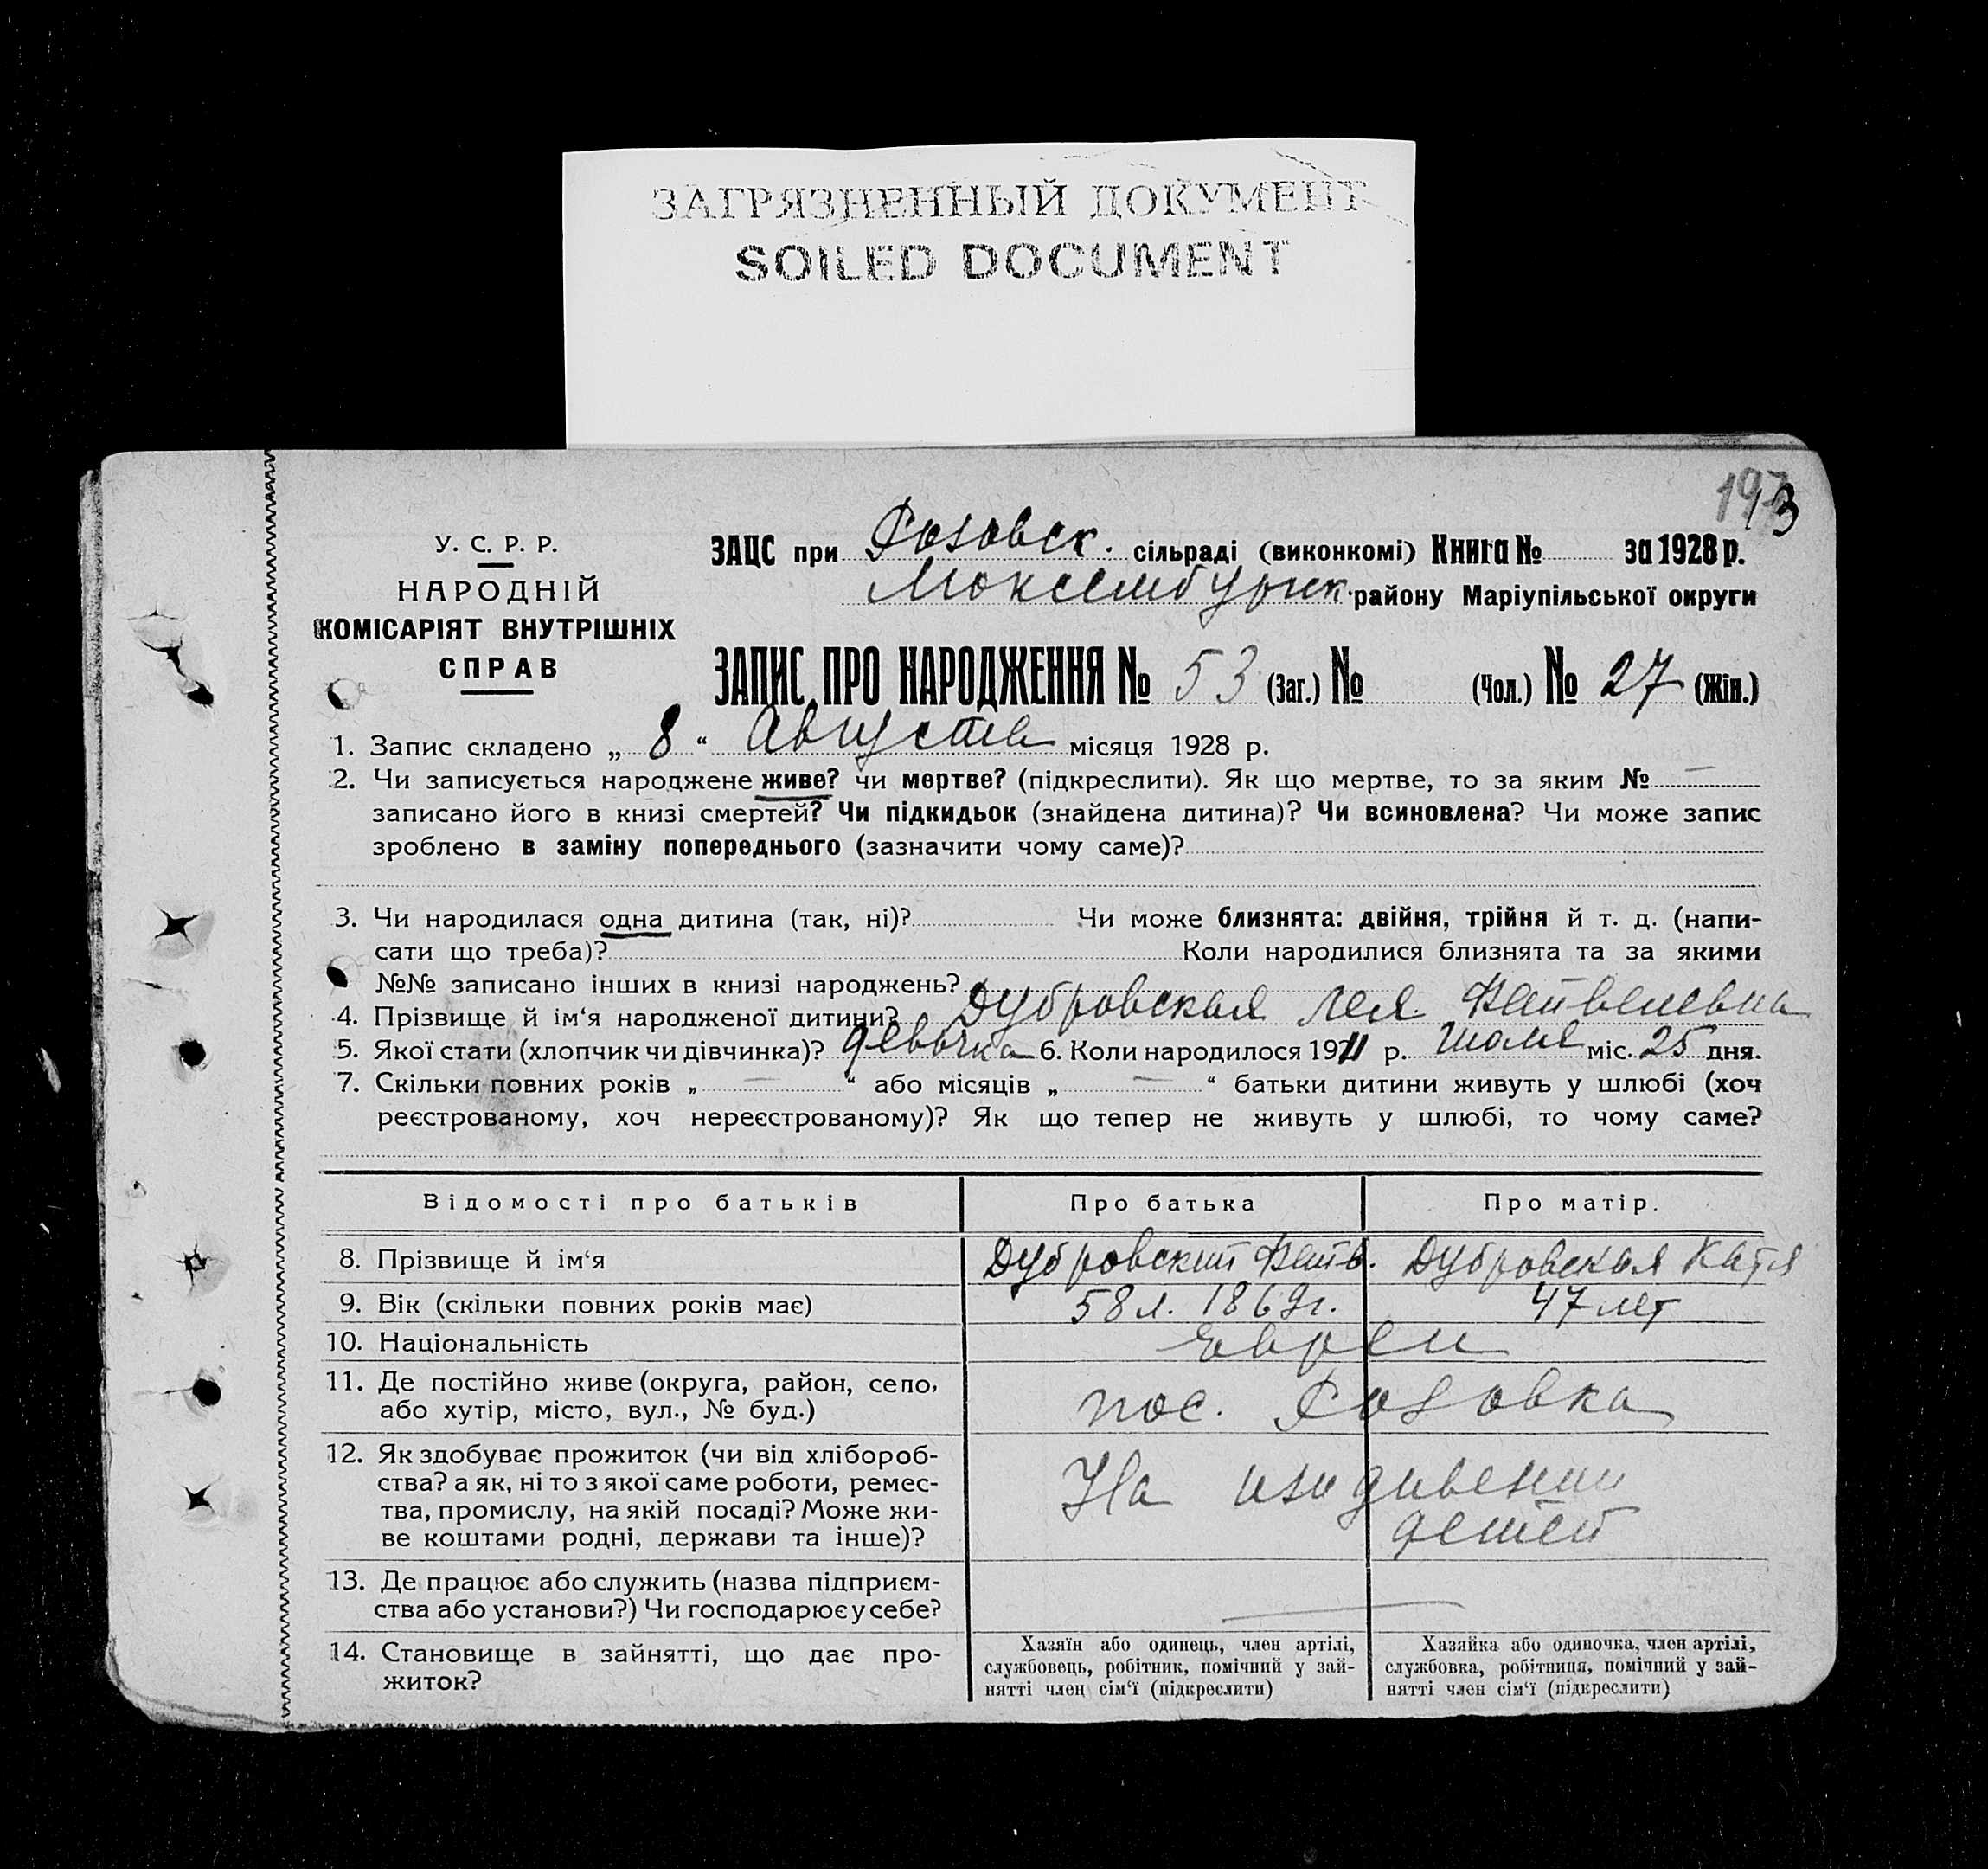 ЗАГРЯЗНЕННЫЙ ДОКУМЕНТ
SOILED DOCUMENT
У. С. Р. Р.
НАРОДНІЙ
КОМІСАРІЯТ ВНУТРІШНІХ
СПРАВ
ЗАЦС при Розовск. сільраді (виконкомі) Книга № за 1928 р.
Люксембургск. району Маріупільської округи
ЗАПИС ПРО НАРОДЖЕННЯ № 53 (Заг.) № (Чол.) № 27 (Жін.)
1. Запис складено „ 8 “ Августа місяця 1928 р.
2. Чи записується народжене живе? чи мертве? (підкреслити). Як що мертве, то за яким № —
записано його в книзі смертей? Чи підкидьок (знайдена дитина)? Чи всиновлена? Чи може запис
зроблено в заміну попереднього (зазначити чому саме)?
3. Чи народилася одна дитина (так, ні)? Чи може близнята: двійня, трійня й т. д. (напи-
сати що треба)? Коли народилися близнята та за якими
№№ записано інших в книзі народжень?
4. Прізвище й ім‘я народженої дитини? Дубровская Лея Файвелевна
5. Якої стати (хлопчик чи дівчинка)? девочка 6. Коли народилося 1911 р. Июля міс. 25 дня.
7. Скільки повних років „ — “ або місяців „ — “ батьки дитини живуть у шлюбі (хоч
реєстрованому, хоч нереєстрованому)? Як що тепер не живуть у шлюбі, то чому саме?
Відомості про батьків Про батька Про матір.
8. Прізвище й ім‘я Дубровский Файв. Дубровская Катя
9. Вік (скільки повних років має) 58 л. 1869 г. 47 лет
10. Національність Евреи
11. Де постійно живе (округа, район, село,
або хутір, місто, вул., № буд.) пос. Розовка
12. Як здобуває прожиток (чи від хлібороб-
ства? а як, ні то з якої саме роботи, ремес-
тва, промислу, на якій посаді? Може жи-
ве коштами родні, держави та інше)? На иждивении
детей
13. Де працює або служить (назва підприєм-
ства або установи?) Чи господарює у себе? —
14. Становище в зайнятті, що дає про-
житок?
Хазяїн або одинець, член артілі,
службовець, робітник, помічний у зай-
нятті член сім‘ї (підкреслити)
Хазяйка або одиночка, член артілі,
службовка, робітниця, помічний у зай-
нятті член сім‘ї (підкреслити)